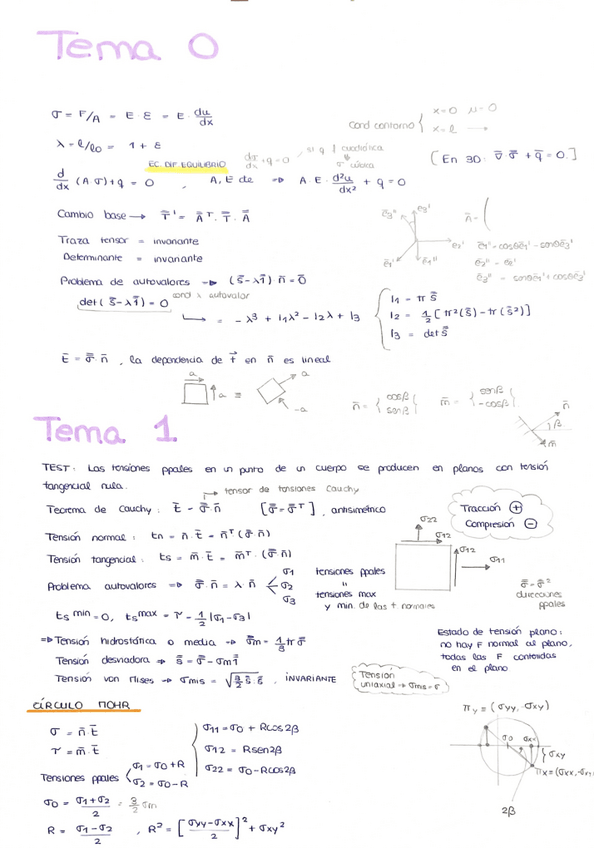 Tema 0
σ = F/A = E · ε = E · du/dx
Cond contorno { x=0 u=0
x=l →
λ = l/l0 = 1 + ε
EC. DIF. EQUILIBRIO
dσ/dx + q = 0
si q | cuadrática
⇓
σ cúbica
[En 3D: ∇̄ σ̿ + q̄ = 0.]
d/dx (A σ) + q = 0 , A, E cte ⇒ A · E · d²u/dx² + q = 0
Cambio base → T̿' = A̿ᵀ · T̿ · A̿
ē3'' ē3' e2' ē1' ē1''
n̄ = (
ē1'' = cosθē1' - senθē3'
ē2'' = ē2'
ē3'' = senθē1' + cosθē3'
Traza tensor = invariante
Determinante = invariante
Problema de autovalores → (s̿ - λ1̿) · n̄ = 0̄
det (s̿ - λ1̿) = 0 cond λ autovalor
= - λ³ + I1λ² - I2λ + I3
I1 = tr s̿
I2 = 1/2 [tr²(s̿) - tr (s̿²)]
I3 = det s̿
t̄ = σ̿ · n̄ , la dependencia de t̄ en n̄ es lineal
a a ≡ a -a
n̄ = { cosβ senβ } m̄ = { senβ -cosβ }
n̄ β m̄
Tema 1.
TEST: Las tensiones ppales en un punto de un cuerpo se producen en planos con tensión
tangencial nula.
→ tensor de tensiones Cauchy
Teorema de Cauchy: t̄ = σ̿ · n̄ [σ̿ = σ̿ᵀ] , antisimétrico
Tracción +
Compresión -
Tensión normal: tn = n̄ · t̄ = n̄ᵀ (σ̿ n̄)
σ22 σ12 σ12 σ11
Tensión tangencial: ts = m̄ · t̄ = m̄ᵀ · (σ̿ n̄)
Problema autovalores ⇒ σ̿ · n̄ = λ · n̄ < σ1 σ2 σ3
tensiones ppales
"
tensiones max
y min de las t normales
direcciones
ppales
ts min = 0, ts max = τ = 1/2 |σ1 - σ3|
⇒ Tensión hidrostática o media → σ̿m = 1/3 tr σ̿
Tensión desviadora ⇒ s̿ = σ̿ - σm1̿
Tensión von Mises → σmis = √(3/2 s̿ : s̿) , INVARIANTE
Tensión
uniaxial → σmis = σ
Estado de tensión plano:
no hay F normal al plano,
todas las F contenidas
en el plano
CÍRCULO MOHR
σ = n̄ t̄
τ = m̄ · t̄
σ11 = σ0 + Rcos2β
σ12 = Rsen2β
σ22 = σ0 - Rcos2β
Tensiones ppales < σ1 = σ0 + R
σ2 = σ0 - R
σ0 = (σ1 + σ2)/2 = 3/2 σm
R = (σ1 - σ2)/2 , R² = [(σyy - σxx)/2]² + σxy²
πy = (σyy, -σxy)
σ0 σxx
σxy
πx = (σxx, -σxy
2β